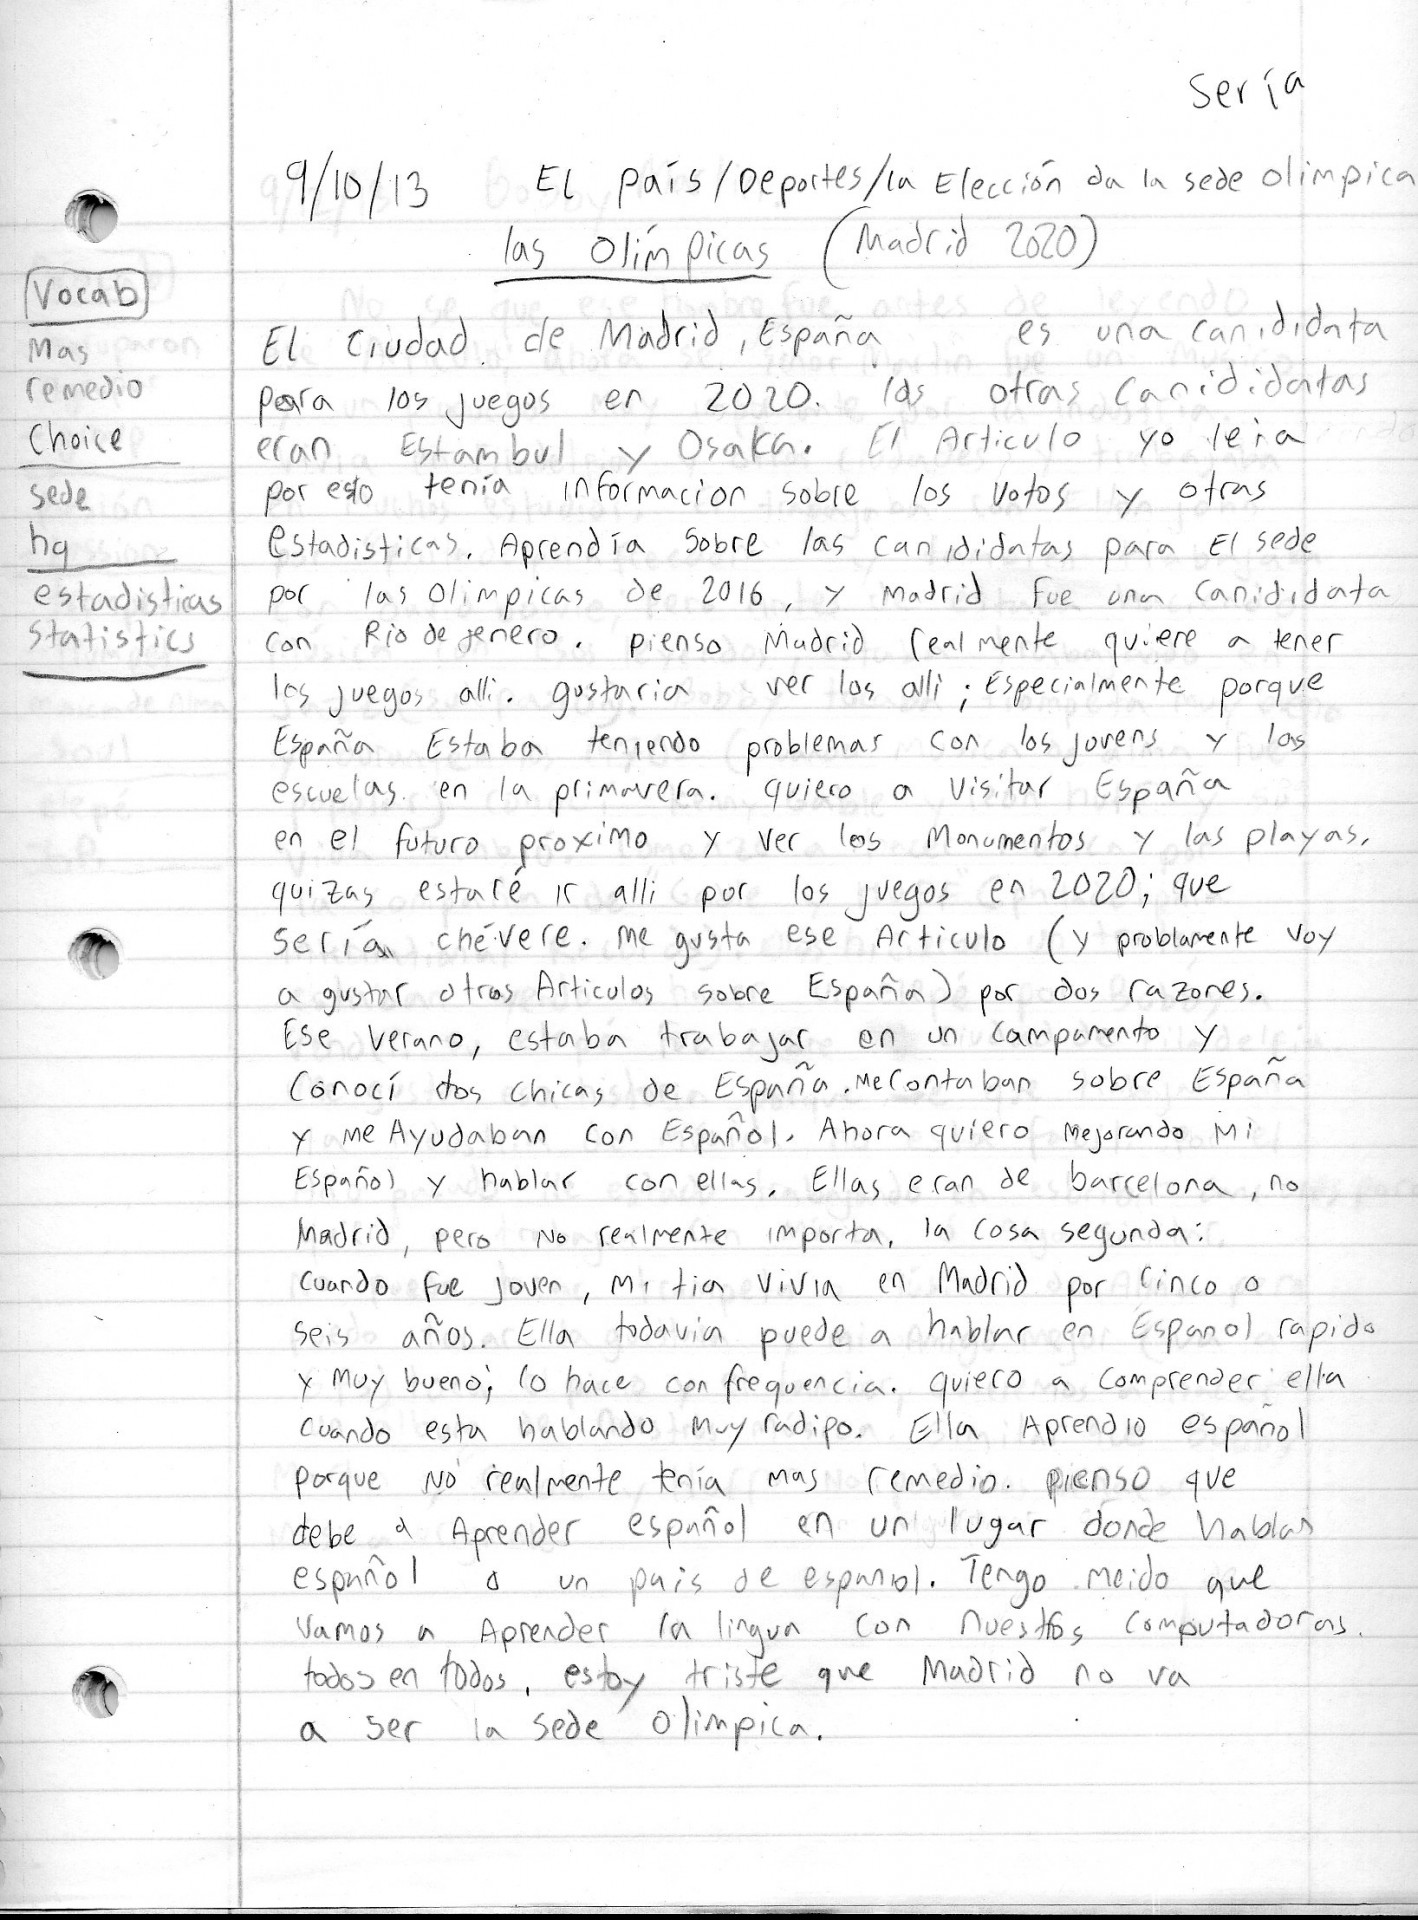 Sería
9/10/13 El País/Deportes/la Elección da la sede olimpica
las Olímpicas (Madrid 2020)
Vocab
Mas
remedio
Choice
sede
hq
estadisticas
statistics
El Ciudad de Madrid, España es una canididata
para los juegos en 2020. las otras canididatas
eran Estambul y Osaka. El Articulo yo leia
por esto tenía informacion sobre los votos y otras
estadisticas. Aprendía sobre las canididatas para El sede
por las olimpicas de 2016, y Madrid fue una canididata
con Rio de jenero. pienso Madrid realmente quiere a tener
los juegos alli. gustaria ver los alli; Especialmente porque
España Estaba teniendo problemas con los jovens y las
escuelas en la primavera. quiero a visitar España
en el futuro proximo y ver los Monumentos y las playas.
quizas estaré ir alli por los juegos en 2020; que
sería chévere. me gusta ese Articulo (y problamente voy
a gustar otros Articulos sobre España) por dos razones.
Ese verano, estaba trabajar en un campamento y
Conocí dos chicas de España. Me Contaban sobre España
y me Ayudaban con Español. Ahora quiero Mejorando Mi
Español y hablar con ellas. Ellas eran de barcelona, no
Madrid, pero No realmente importa. la cosa segunda:
cuando fue joven, Mi tia vivia en Madrid por cinco o
seis años. Ella todavia puede a hablar en Espanol rapido
y muy bueno; lo hace con frequencia. quiero a comprender ella
cuando esta hablando muy radipo. Ella Aprendio español
porque No realmente tenía mas remedio. pienso que
debe a Aprender español en un lugar dónde hablan
español o un pais de espanol. Tengo meido que
vamos a Aprender la lingua con nuestros computadoras.
todos en todos, estoy triste que Madrid no va
a ser la sede olimpica.